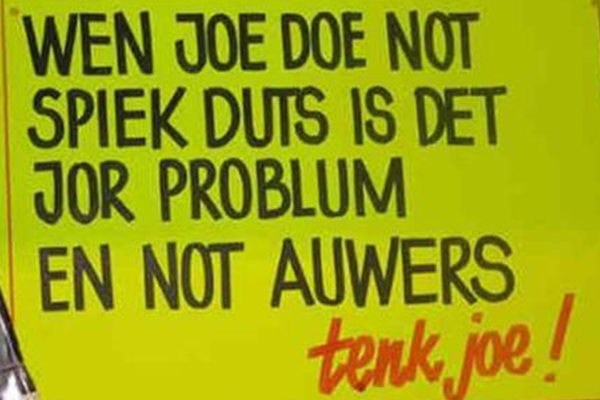 WEN JOE DOE NOT
SPIEK DUTS IS DET
JOR PROBLUM
EN NOT AUWERS
tenk joe!